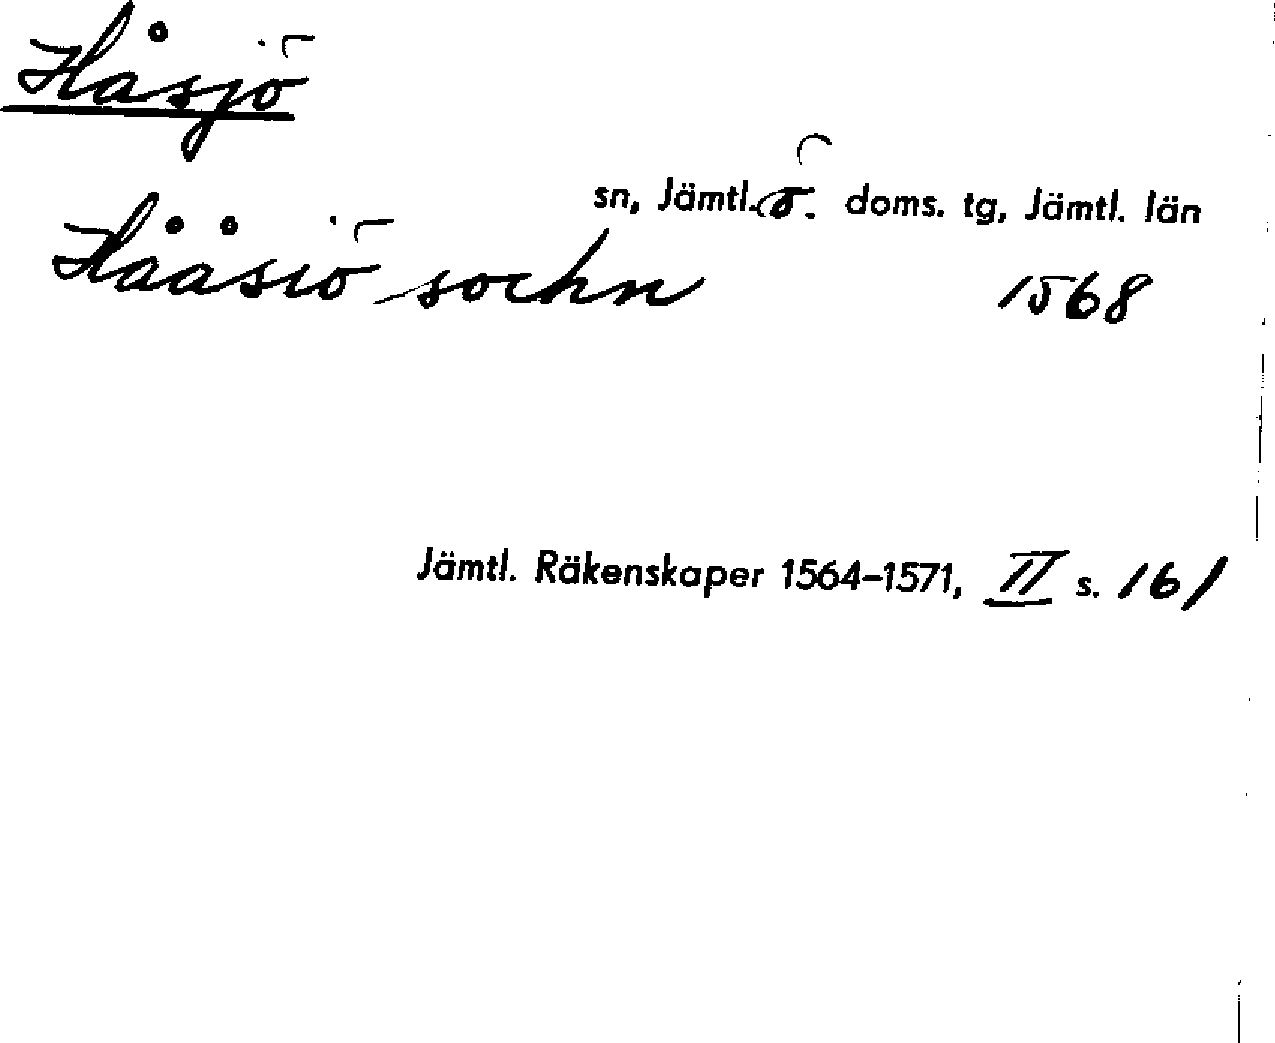 Håsjö
sn, Jämtl. ö. doms. tg, Jämtl. län
Hååsiö sochn 1568
Jämtl. Räkenskaper 1564-1571, II s. 161